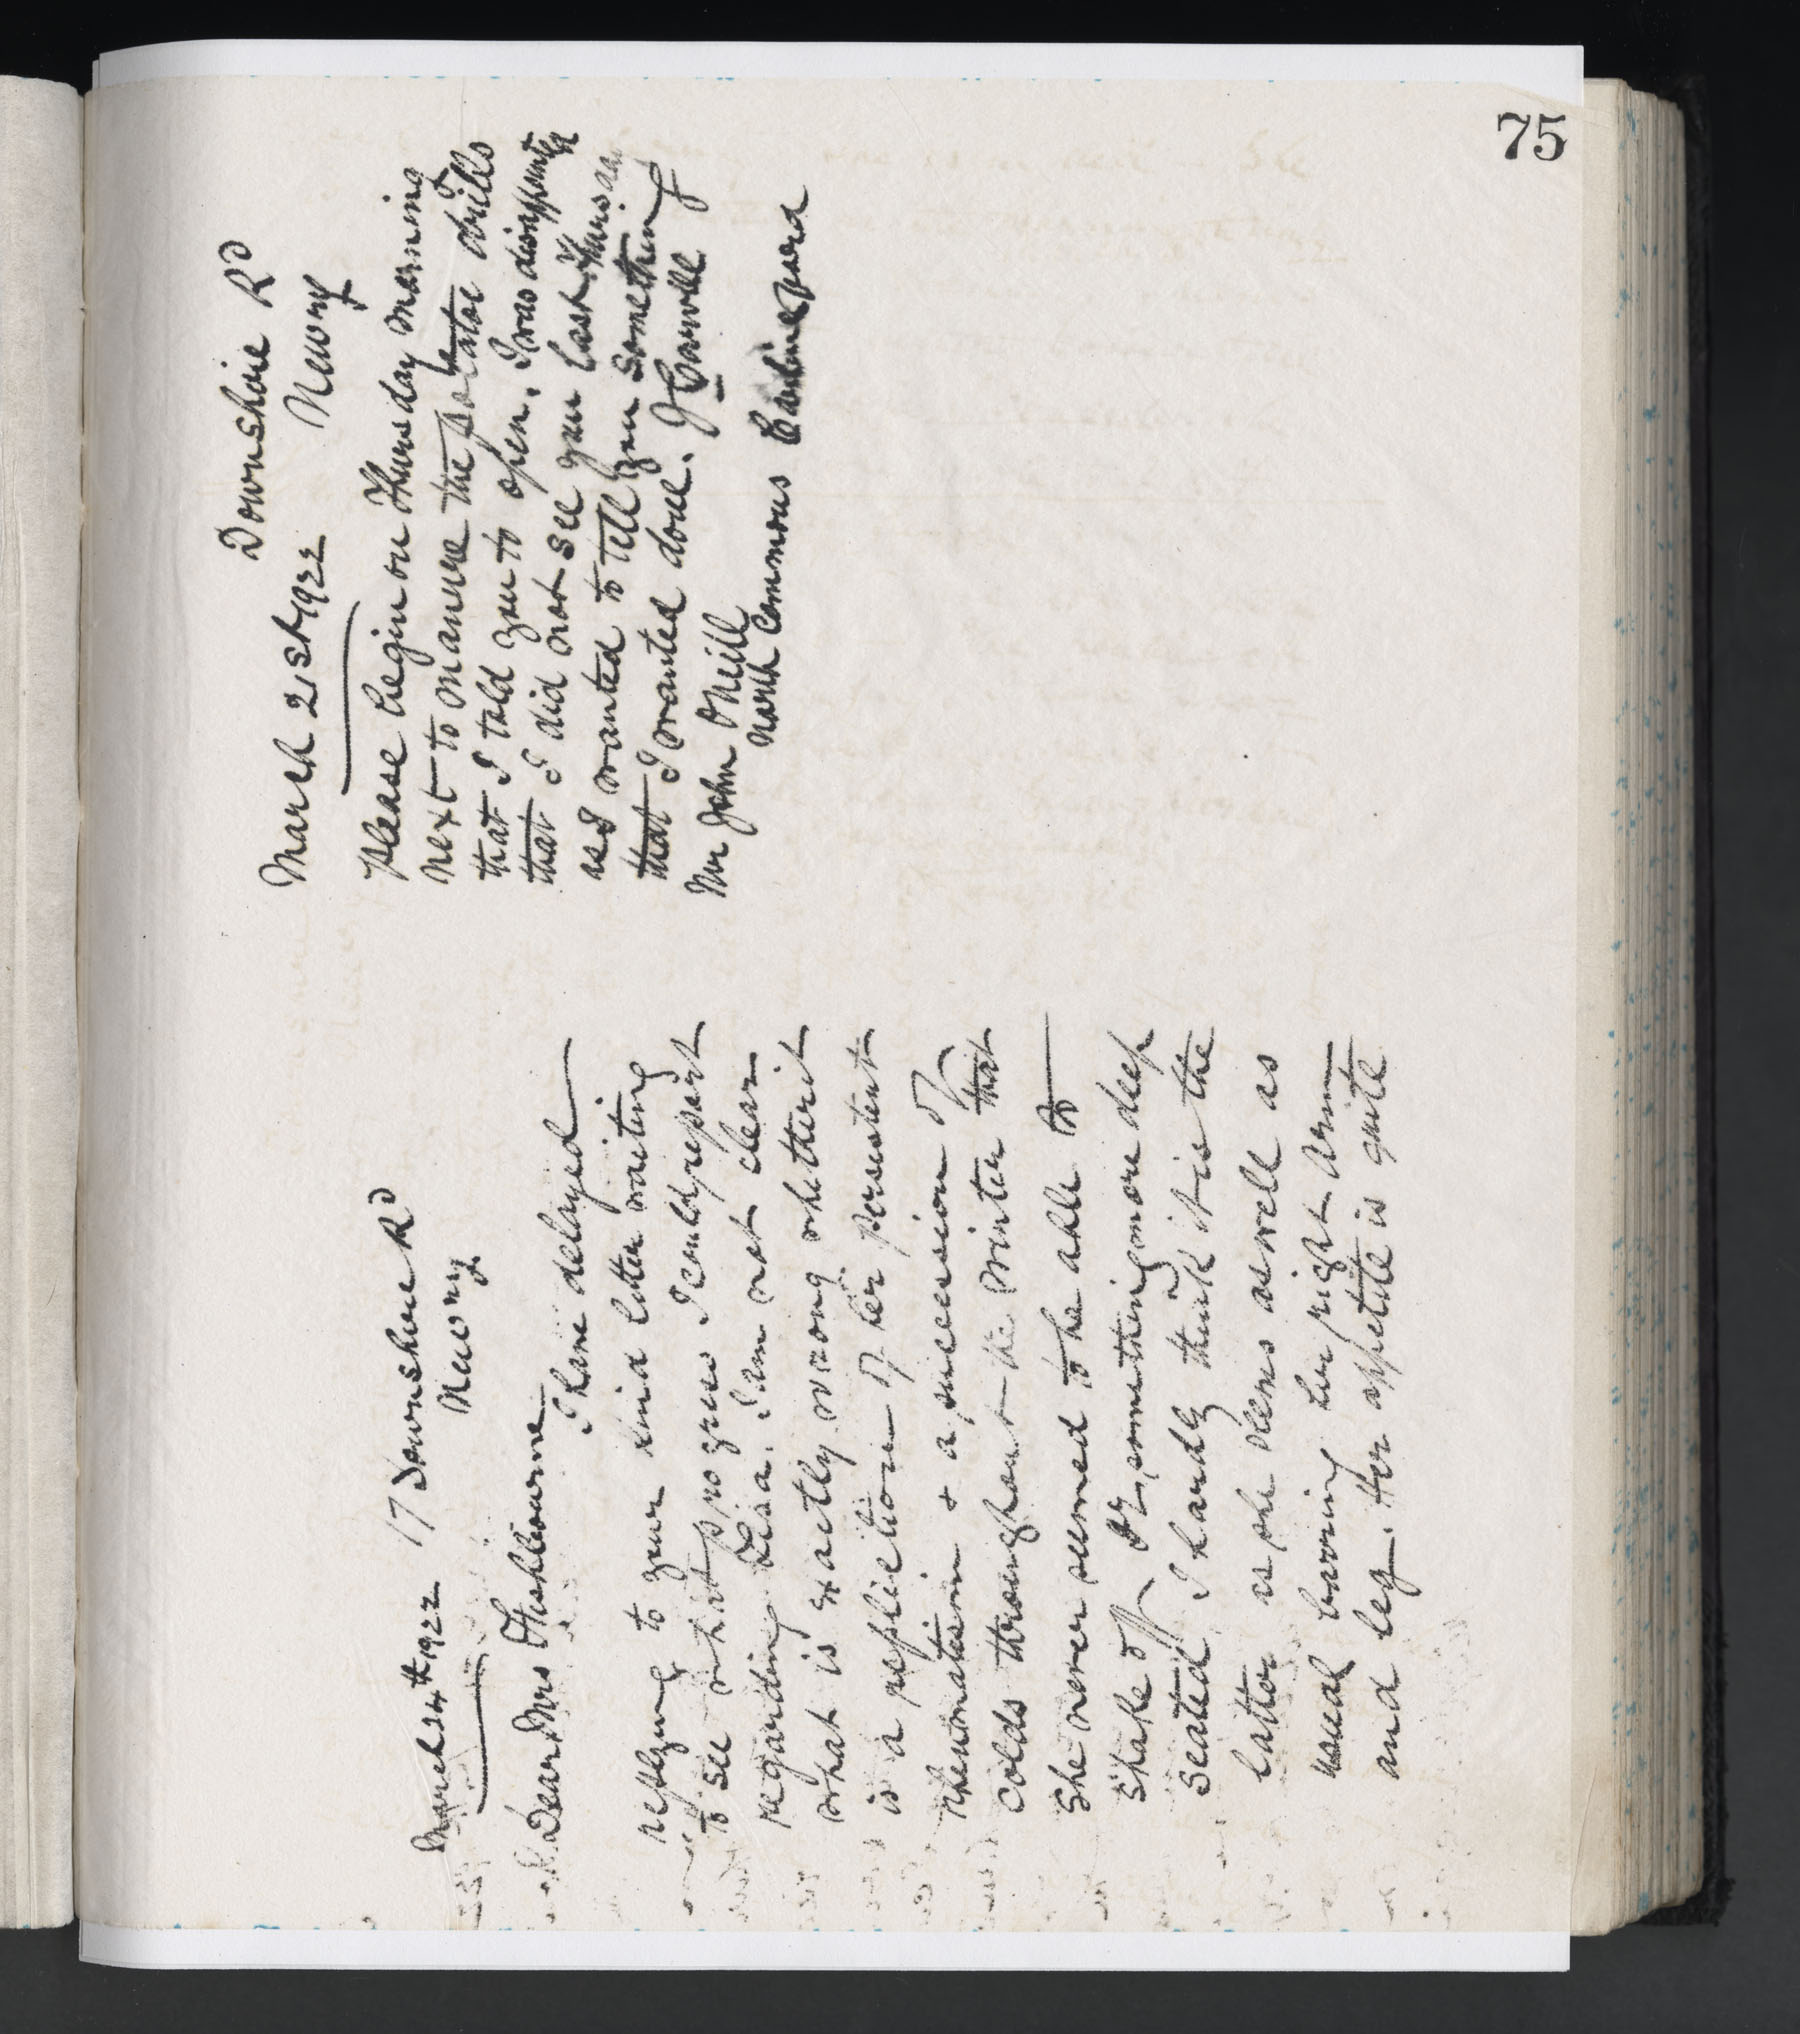 75
March 24th 1922 17 Downshire Rd
Newry.
Dear Mrs Fishbourne
I have delayed
replying to your kind letter waiting
to see what progress I could report
regarding Lisa. I am not clear
what is exactly wrong whether it
is a repetition of her persistent
rheumatism + a succession of
colds throughout the winter that
she never seemed to be able to
shake off or something more deep
seated. I hardly think it is the
latter as she seems as well as
usual barring her right arm
and leg. Her appetite is quite
Downshire Rd
March 21st 1922 Newry
Please begin on Thursday morning
next to manure the potatoe drills
that I told you to open. I was disappointed
that I did not see you last Thursday
as I wanted to tell you something
that I wanted done. J Carvill
Mr John ONeill
North Commons Carlingford